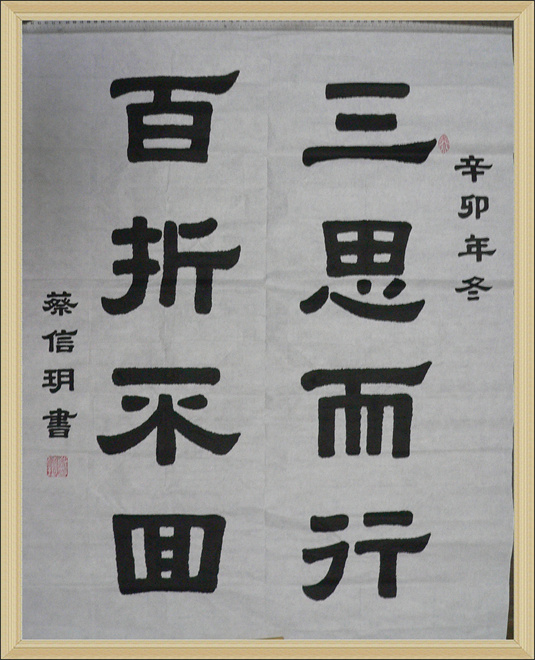 辛卯年冬
三思而行
百折不回
蔡信玥書